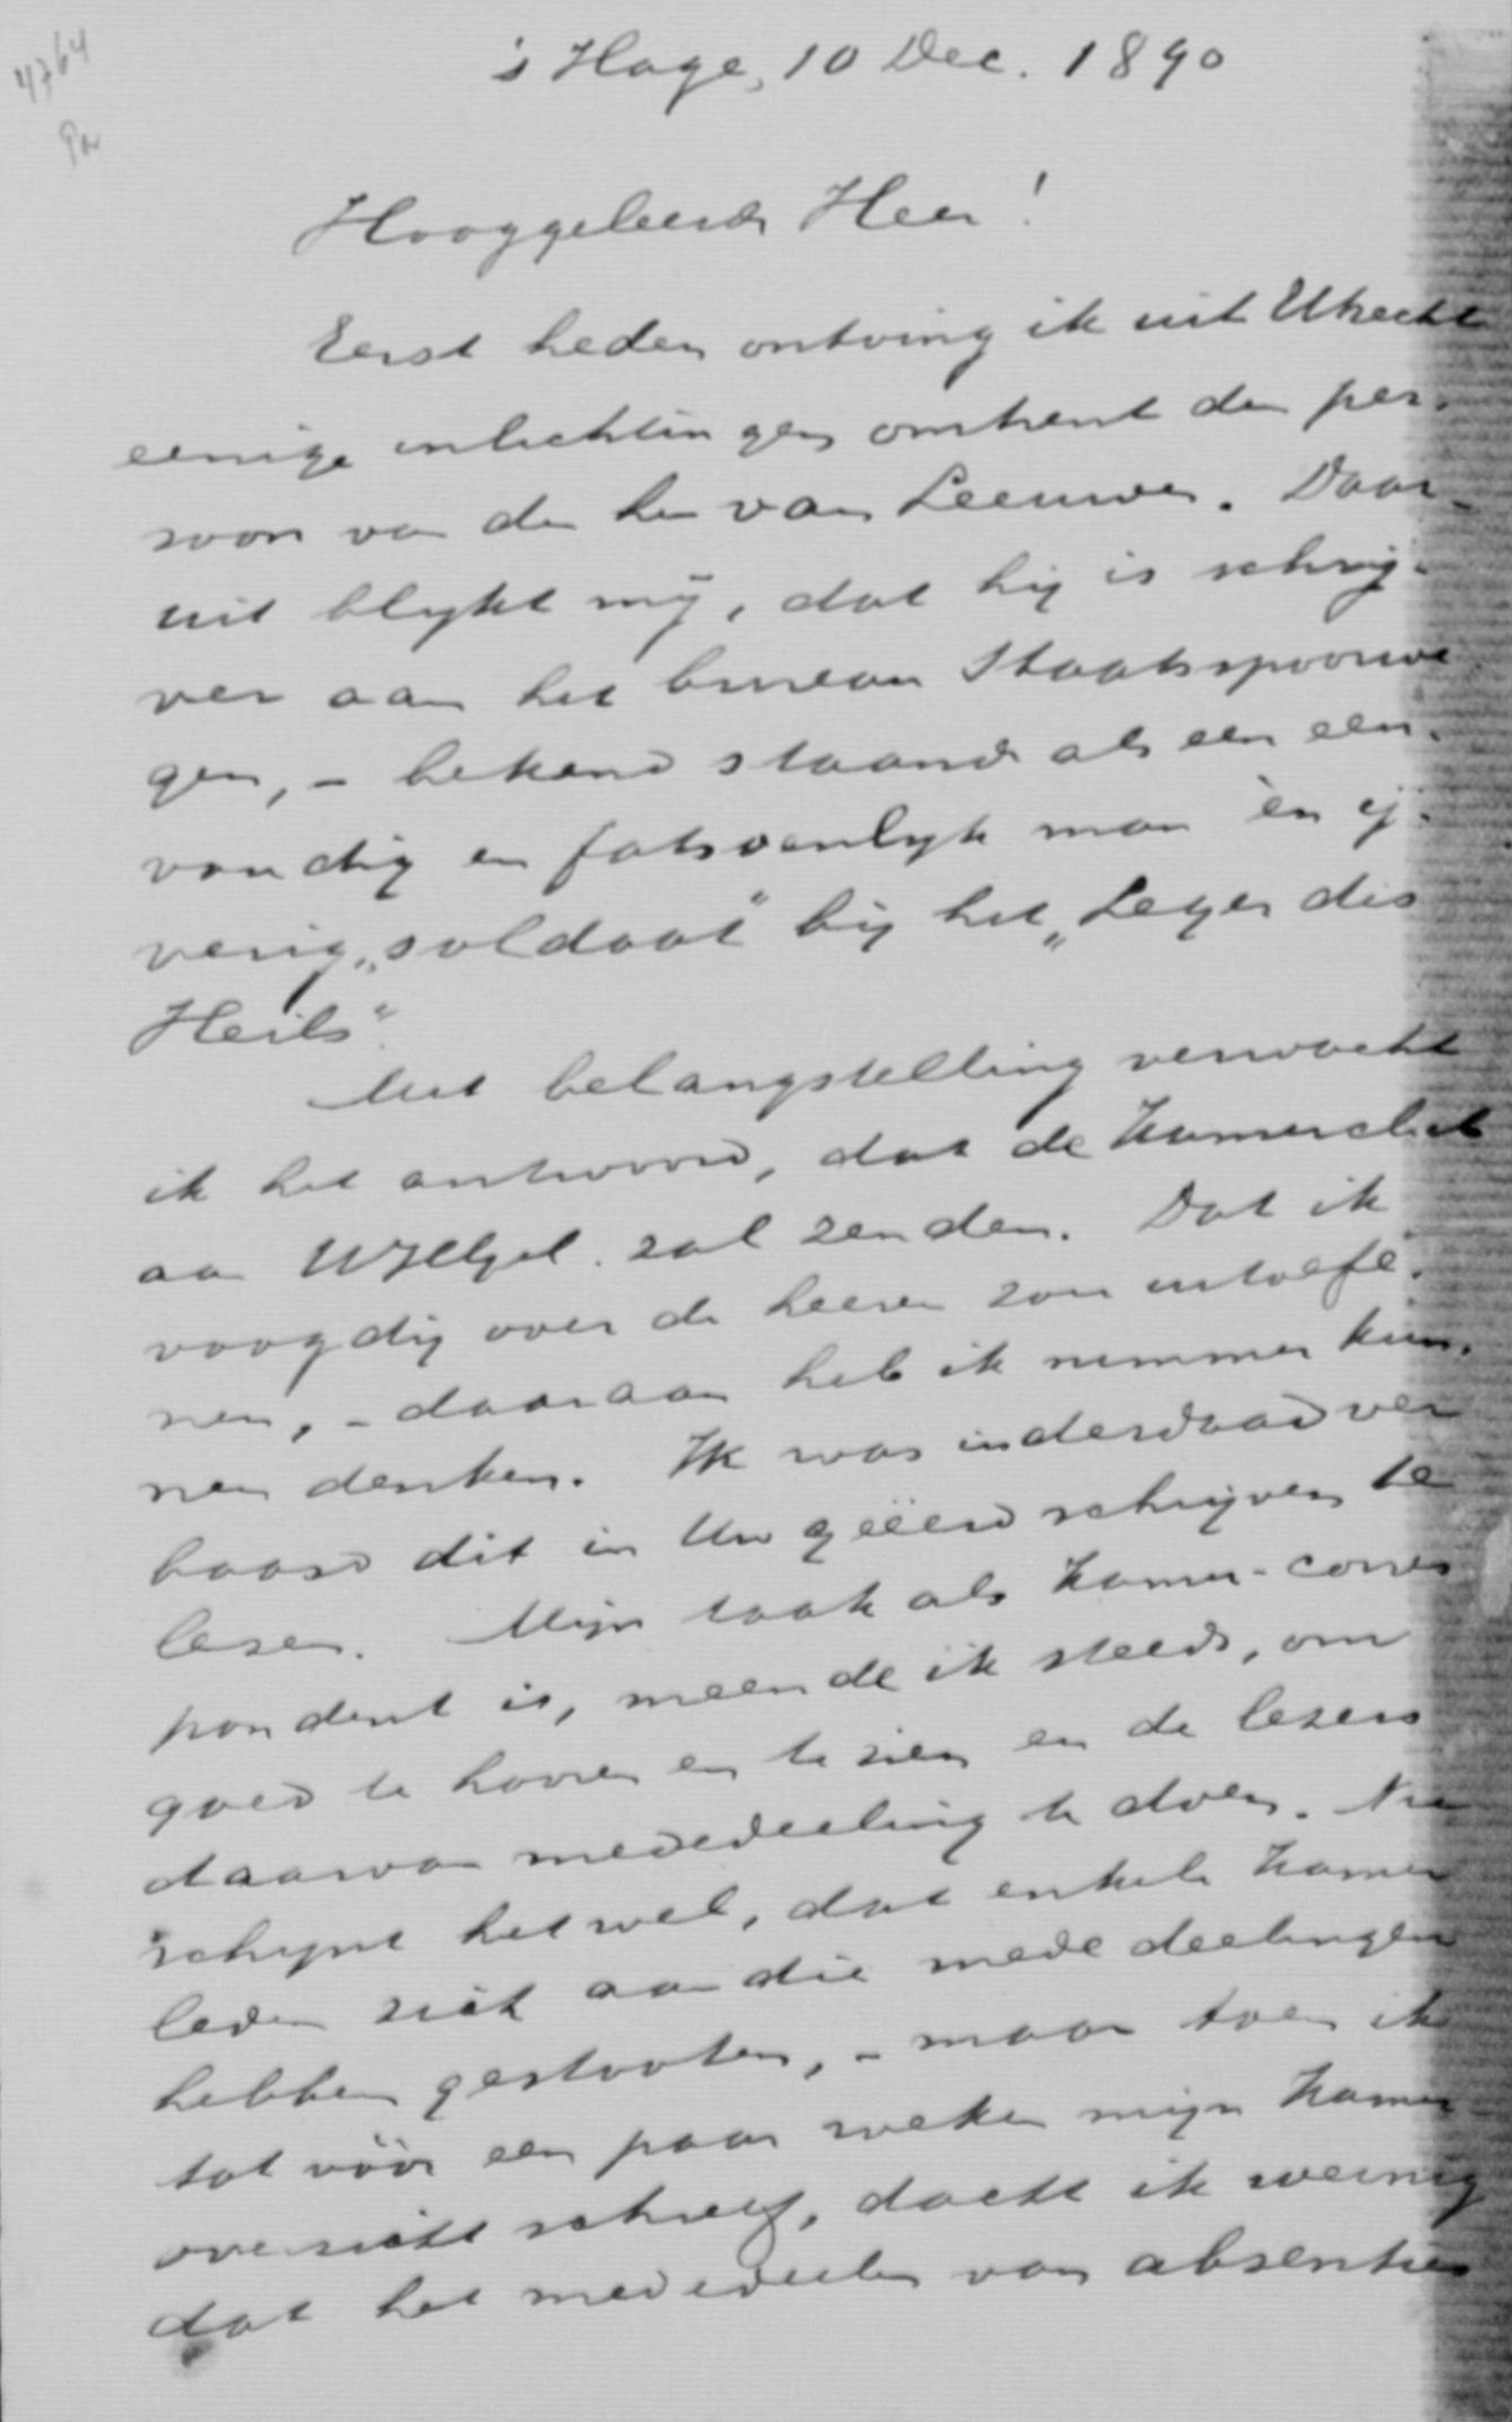 4764
's Hage, 10 Dec. 1890
Hooggeleerde Heer!
Eerst heden ontving ik uit Utrecht
eenige inlichtingen omtrent den per-
soon van den hr van Leeuwen. Daar-
uit blijkt mij, dat hij is schrij-
ver aan het bureau Staatsspoorwe
gen, - bekend staande als een een-
voudig en fatsoenlijk man èn ij-
verig "soldaat" bij het "Leger des
Heils".
Met belangstelling verwacht
ik het antwoord, dat de Kamerclub
aan UHGel. zal zenden. Dat ik
voogdij over de heeren zou uitoefe-
nen, - daaraan heb ik nimmer kun-
nen denken. Ik was inderdaad ver
baasd dit in Uw geëerd schrijven te
lezen. Mijn taak als Kamer-corres
pondent is, meende ik steeds, om
goed te hooren en te zien en de lezers
daarvan mededeeling te doen. Nu
schijnt het wel, dat enkele Kamer
leden zich aan die mededeelingen
hebben gestooten, - maar toen ik
tot vóór een paar weken mijn Kamer-
overzicht schreef, dacht ik weinig
dat het mededeelen van absenties